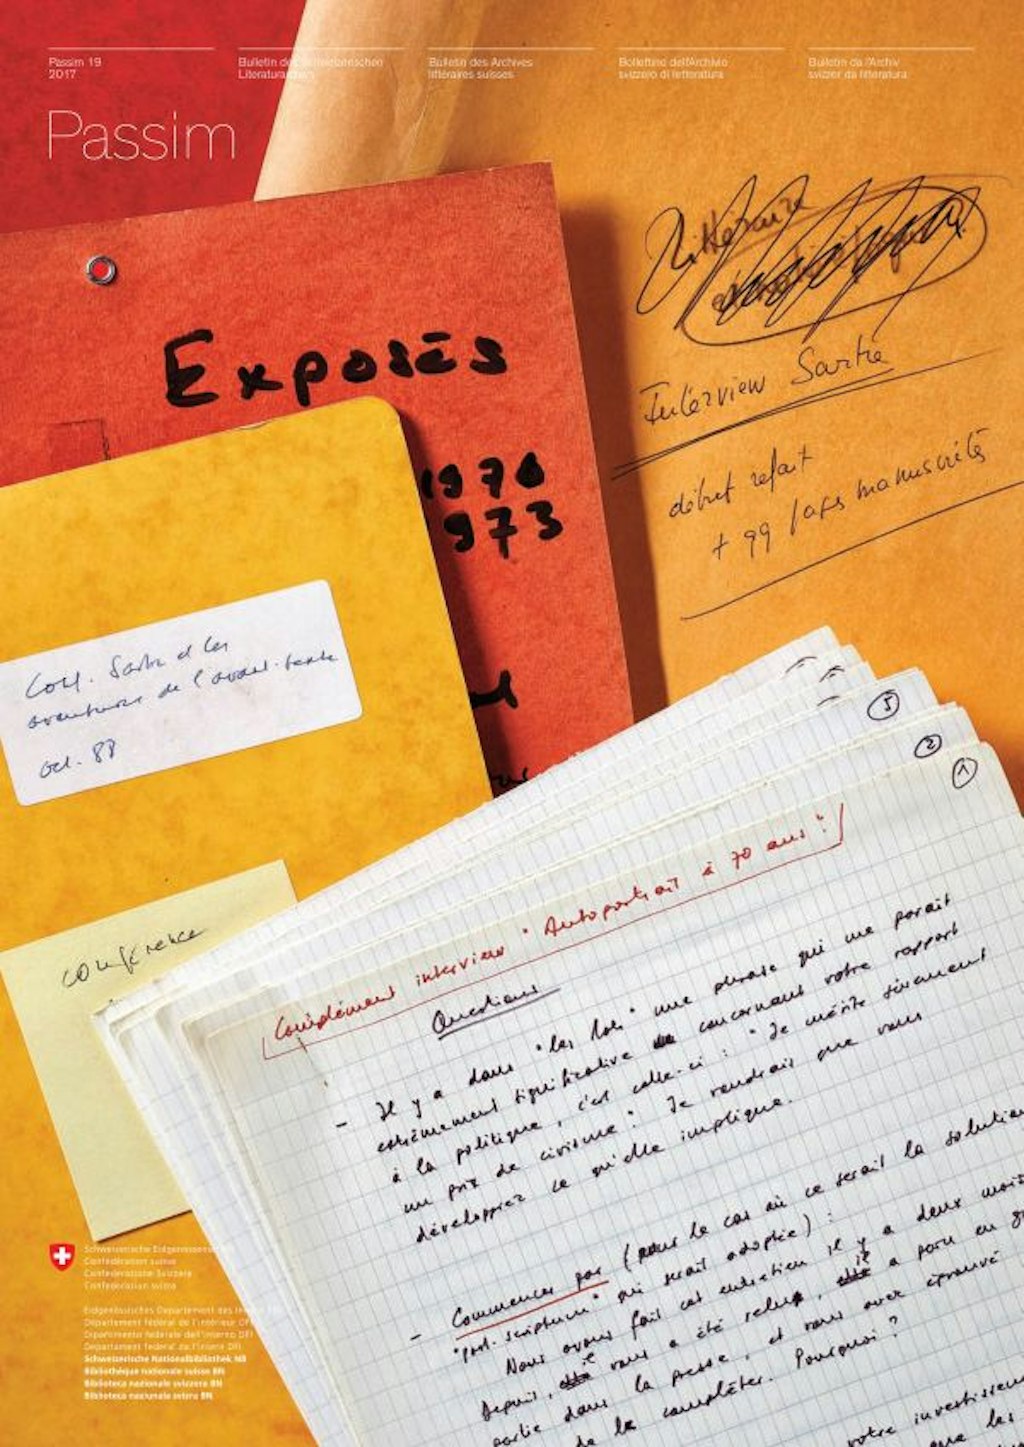 Passim 19
2017
Bulletin des Schweizerischen
Literaturarchivs
Bulletin des Archives
littéraires suisses
Bollettino dell'Archivio
svizzero di letteratura
Bulletin da l'Archiv
svizzer da litteratura
Passim
Littéraire
Interview Sartre
début refait
+ 99 pages manuscrites
Exposés
1970
1973
Conf. Sartre et les
aventures de l'avant-texte
oct. 88
conférence
3
2
1
Complément interview "Autoportrait à 70 ans"
Questions
- Il y a dans "les Mots" une phrase qui me paraît
extrêmement significative concernant votre rapport
à la politique, c'est celle-ci : "Je mérite sûrement
un prix de civisme". Je voudrais que vous
développiez ce qu'elle implique.
- Commencer par (pour le cas où ce serait la solution
"post-scriptum" qui serait adoptée) :
Nous avons fait cet entretien il y a deux mois
Depuis, il a été relu, il a paru en
partie dans la presse, et vous avez éprouvé
de le compléter. Pourquoi ?
votre investissement
que les
Schweizerische Eidgenossenschaft
Confédération suisse
Confederazione Svizzera
Confederaziun svizra
Eidgenössisches Departement des Innern EDI
Département fédéral de l'intérieur DFI
Dipartimento federale dell'interno DFI
Departament federal da l'intern DFI
Schweizerische Nationalbibliothek NB
Bibliothèque nationale suisse BN
Biblioteca nazionale svizzera BN
Biblioteca naziunala svizra BN